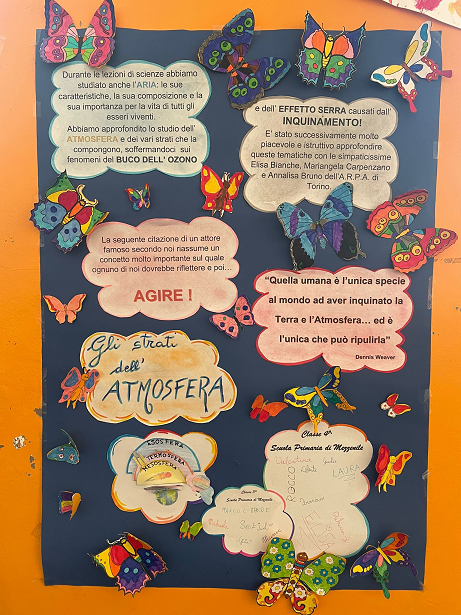 Durante le lezioni di scienze abbiamo
studiato anche l'ARIA: le sue
caratteristiche, la sua composizione e la
sua importanza per la vita di tutti gli
esseri viventi.
Abbiamo approfondito lo studio dell'
ATMOSFERA e dei vari strati che la
compongono, soffermandoci sui
fenomeni del BUCO DELL' OZONO
e dell' EFFETTO SERRA causati dall'
INQUINAMENTO!
E' stato successivamente molto
piacevole e istruttivo approfondire
queste tematiche con le simpaticissime
Elisa Bianche, Mariangela Carpenzano
e Annalisa Bruno dell'A.R.P.A. di
Torino.
La seguente citazione di un attore
famoso secondo noi riassume un
concetto molto importante sul quale
ognuno di noi dovrebbe riflettere e poi…
AGIRE !
“Quella umana è l'unica specie
al mondo ad aver inquinato la
Terra e l'Atmosfera… ed è
l'unica che può ripulirla”
Dennis Weaver
Gli strati
dell'
ATMOSFERA
ESOSFERA
TERMOSFERA
MESOSFERA
Classe 4ª
Scuola Primaria di Mezzenile
ROCCO
LAURA
Classe 5ª
Scuola Primaria di Mezzenile